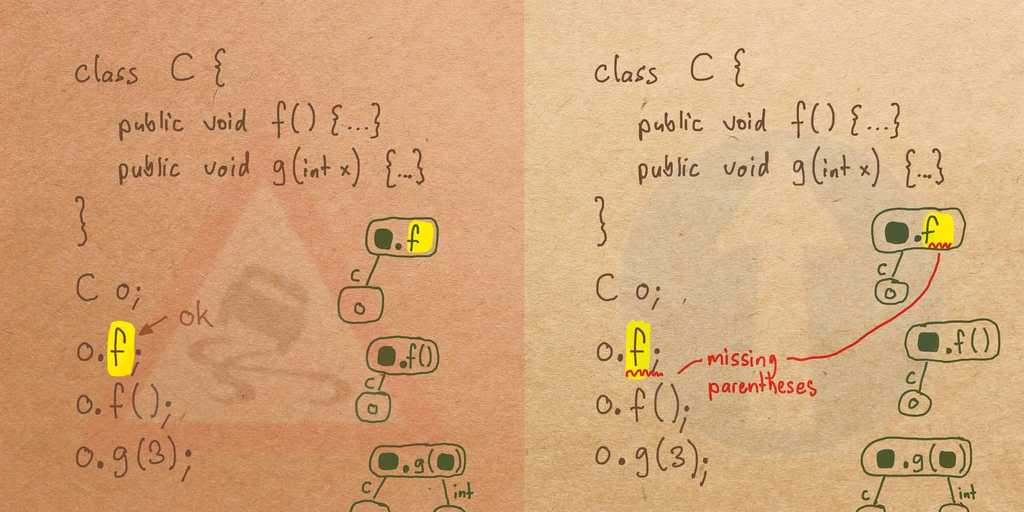 class C {
public void f() {...}
public void g(int x) {...}
}
C o;
o.f;
ok
o.f();
o.g(3);
.f
c
o
.f()
c
o
.g( )
c
int
class C {
public void f() {...}
public void g(int x) {...}
}
C o;
o.f;
missing
parentheses
o.f();
o.g(3);
.f
c
o
.f()
c
o
.g( )
c
int